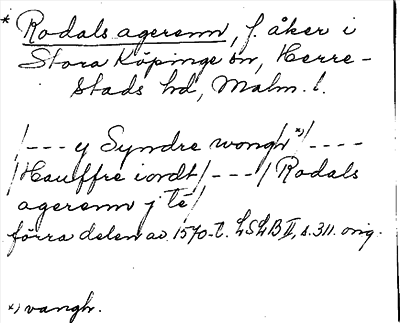 * Rodals agerenn, f. åker i
Stora Köpinge sn, Herre-
stads hd, Malm. l.
/--- y Syndre wongh *)/----
/Hauffre iordt/---/ Rodals
agerenn j té/
förra delen av 1570-t. LSLB II, s. 311. orig.
*) vangh.